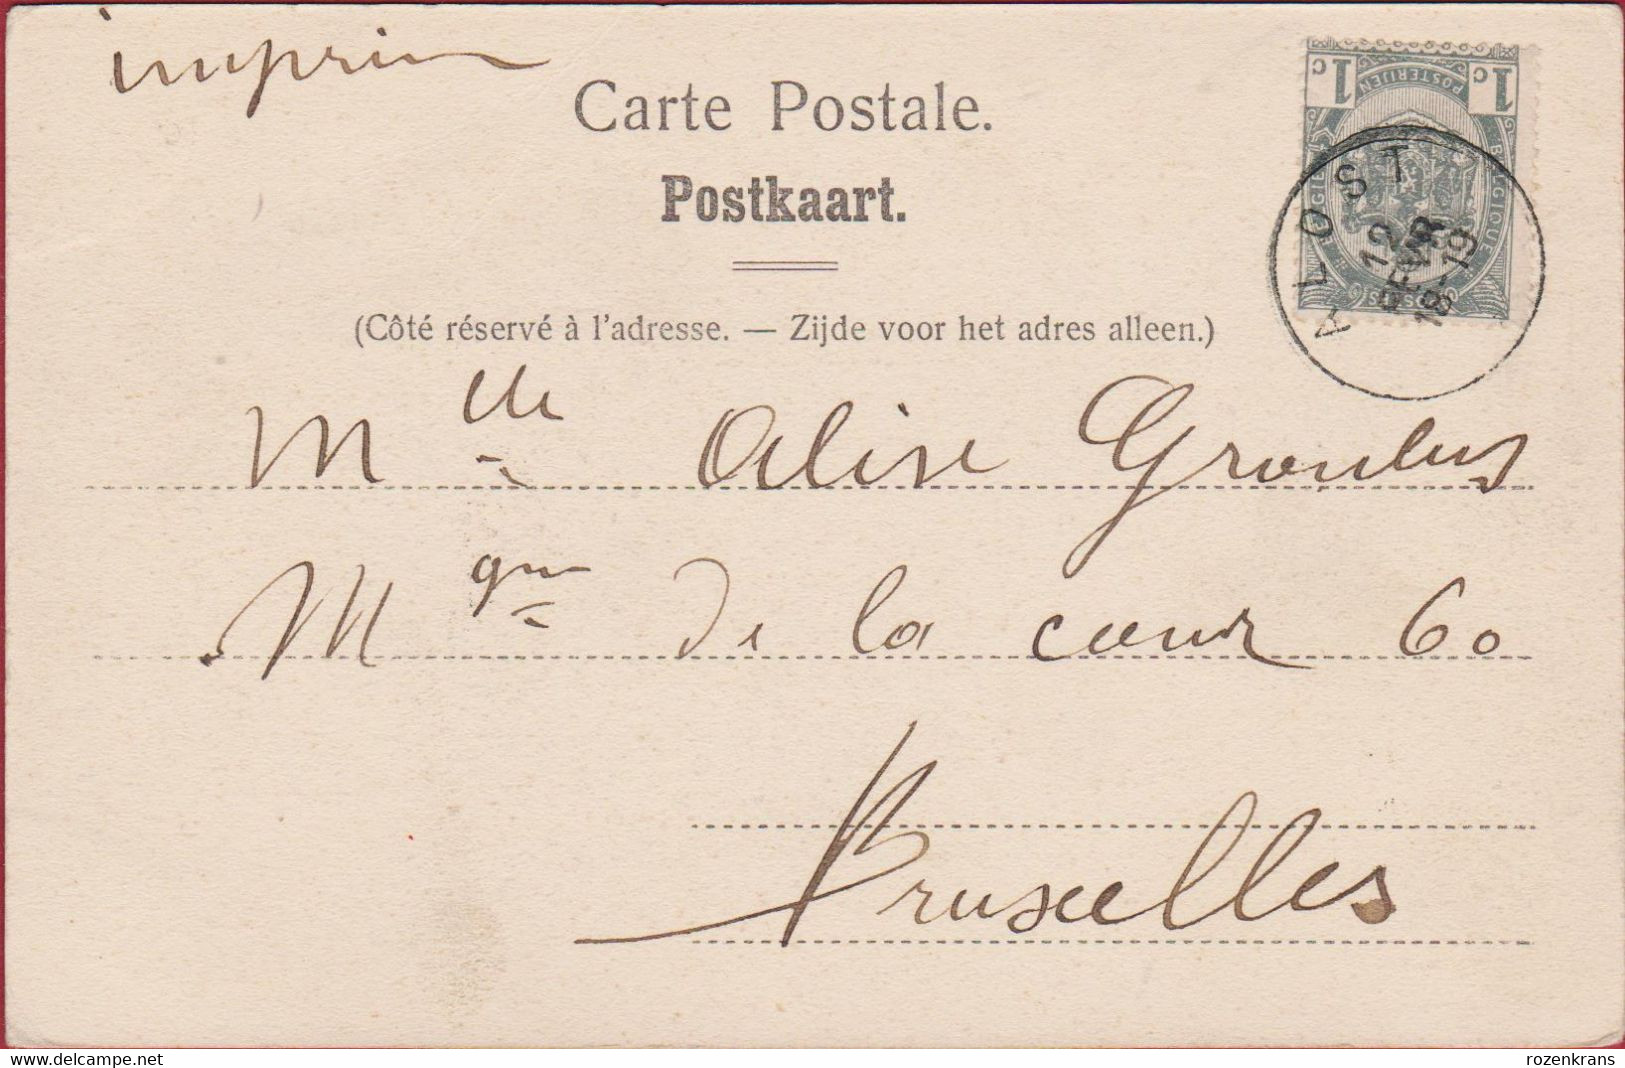 imprim
Carte Postale.
Postkaart.
(Côté réservé à l'adresse. — Zijde voor het adres alleen.)
1c POSTERIJEN 1c
BELGIQUE
ALOST
12
FEVR
18-19
Mlle Alise
Mgne de la cour 60
Bruxelles
www.delcampe.net
rozenkrans